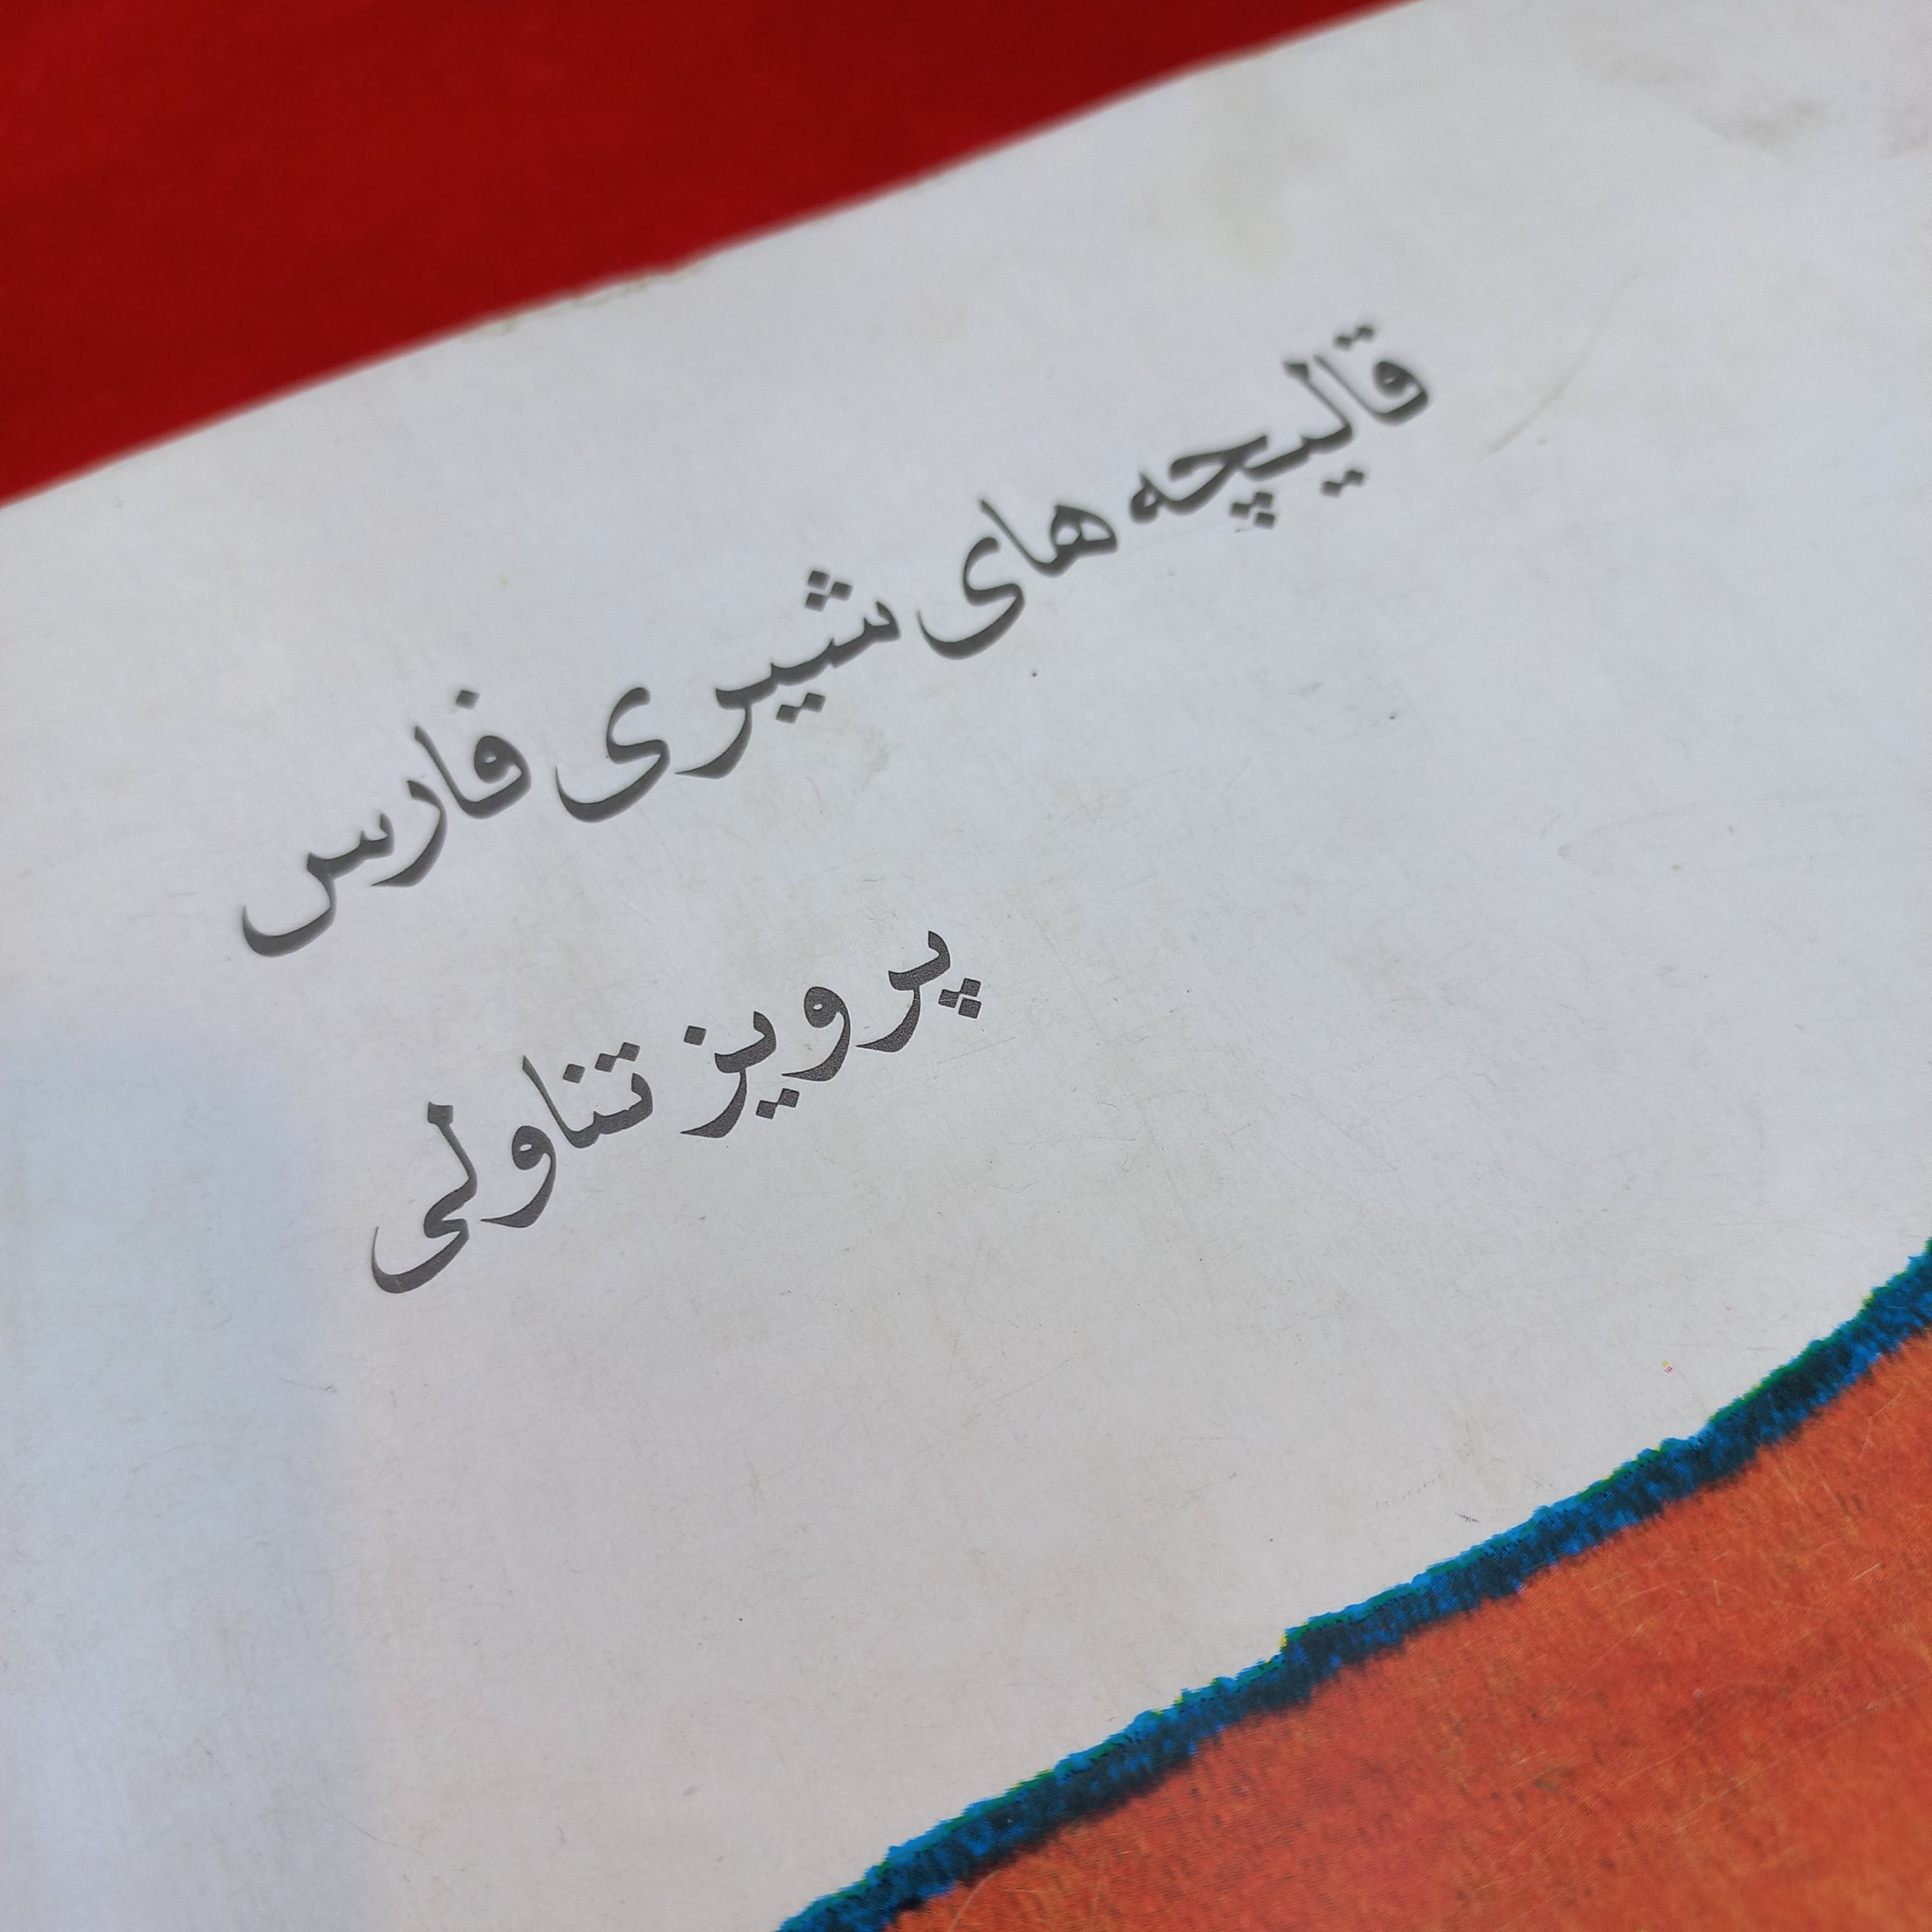 قالیچه های شیری فارس
پرویز تناولی